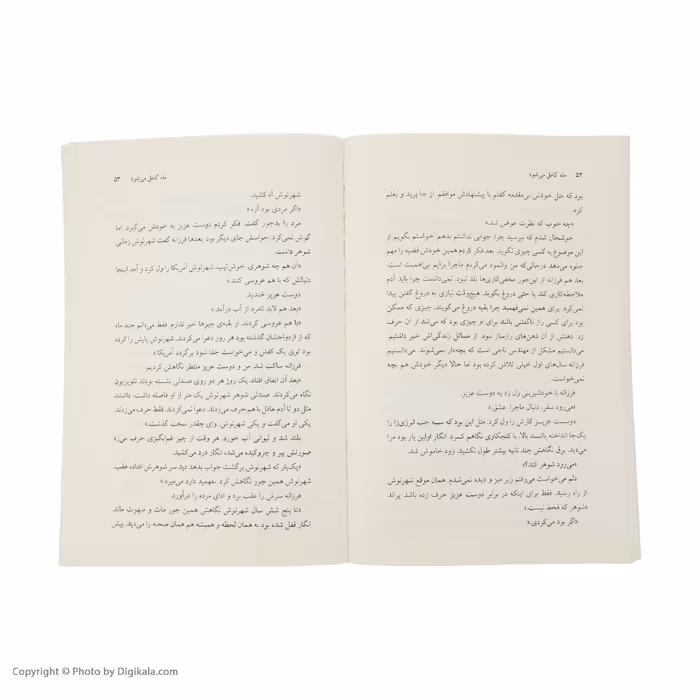 ۵۲ ماه کامل می‌شود
بود که مثل خودش بی‌مقدمه گفتم با پیشنهادش موافقم. از جا پرید و بغلم
کرد.
«چه خوب که نظرت عوض شد.»
خوشحال شدم که نپرسید چرا. جوابی نداشتم بدهم. خواستم بگویم از
این موضوع به کسی چیزی نگوید. بعد فکر کردم همین خودش قضیه را مهم
جلوه می‌دهد درحالی‌که من وانمود می‌کردم ماجرا برایم بی‌اهمیت است.
بعد هم فرزانه از این‌جور مخفی‌کاری‌ها بلد نبود. نمی‌دانست چرا باید آدم
ملاحظه‌کاری کند یا حتی دروغ بگوید. هیچ‌وقت نیازی به دروغ گفتن پیدا
نمی‌کرد. برای همین نمی‌فهمید چرا بقیه دروغ می‌گویند. چیزی که ممکن
بود برای کسی راز ناگفتنی باشد برای او چیزی بود که می‌شد از آن حرف
زد. ذهنش از آن ذهن‌های رازساز نبود. از مسائل زندگی‌اش خبر داشتیم.
می‌دانستیم مشکل از مهندس ناجی است که بچه‌دار نمی‌شوند. می‌دانستیم
فرزانه سال‌های اول خیلی تلاش کرده بود اما حالا دیگر خودش هم بچه
نمی‌خواست.
فرزانه با خودشیرینی زل زد به دوست عزیز.
«می‌رود سفر. دنبال ماجرا. عشق.»
دوست عزیز کارش را ول کرد. مثل این بود که سه حب انرژی‌زا را
یک‌جا انداخته باشد بالا. با کنجکاوی نگاهم کرد. انگار اولین بار بود مرا
می‌دید. برق نگاهش چند ثانیه بیشتر طول نکشید. زود خاموش شد.
«می‌رود شوهر کند؟»
دلم می‌خواست می‌رفتم زیر میز و دیده نمی‌شدم. همان موقع شهرنوش
از راه رسید. فقط برای اینکه در برابر دوست عزیز حرف زده باشد پراند
«شوهر که قحط نیست.»
«اگر بود می‌کردی.»
ماه کامل می‌شود ۵۳
شهرنوش آه کشید.
«اگر مردی بود آره.»
مرد را بدجور گفت. فکر کردم دوست عزیز به خودش می‌گیرد. اما
گوش نمی‌کرد. حواسش جای دیگر بود. بعدها فرزانه گفت شهرنوش زمانی
شوهر داشت.
«آن هم چه شوهری. خوش‌تیپ. شهرنوش آمریکا را ول کرد و آمد اینجا
دنبالش که با هم عروسی کنند.»
دوست عزیز خندید.
«بعد هم لابد نامرد از آب درآمد.»
«با هم عروسی کردند. از بقیه‌ی چیزها خبر ندارم. فقط می‌دانم چند ماه
که از ازدواجشان گذشته بود هر روز دعوا می‌کردند. شهرنوش پایش را کرده
بود توی یک کفش و می‌خواست جدا شود برگردد آمریکا.»
فرزانه ساکت شد. من و دوست عزیز منتظر نگاهش کردیم.
«بعد آن اتفاق افتاد. یک روز هر دو روی صندلی نشسته بودند تلویزیون
نگاه می‌کردند. صندلی شوهر شهرنوش یک متر از او فاصله داشت. داشتند
مثل دو تا آدم عاقل با هم حرف می‌زدند. دعوا نمی‌کردند. فقط حرف می‌زدند.
یکی او می‌گفت و یکی شهرنوش. وای چقدر سخت گذشت.»
بلند شد و لیوانی آب خورد. هر وقت از چیز غم‌انگیزی حرف می‌زد
صورتش پیر و چروکیده می‌شد، انگار درد می‌کشید.
«یک‌بار که شهرنوش برگشت جواب بدهد دید سر شوهرش افتاده عقب.
شهرنوش همین جور نگاهش کرد. نفهمید دارد می‌میرد.»
فرزانه سرش را عقب برد و ادای مرده را درآورد.
«تا پنج شش سال شهرنوش نگاهش همین جور مات و مبهوت ماند.
انگار قفل شده بود به همان لحظه و همیشه هم همان صحنه را می‌دید. پیش
Copyright © Photo by Digikala.com